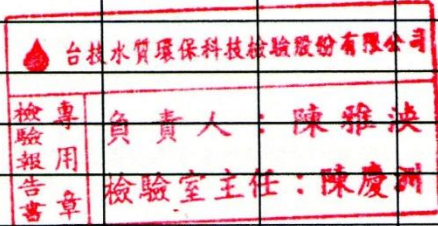 台技水質環保科技檢驗股份有限公司
檢驗報告書專用章
負責人：陳雅泱
檢驗室主任：陳慶洲